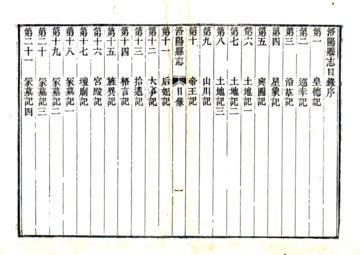 洛陽縣志目錄序
第一 皇德記
第二 巡幸記
第三 沿革記
第四 星象記
第五 輿圖記
第六 土地記一
第七 土地記二
第八 土地記三
第九 山川記
第十 帝王記
洛陽縣志 目錄 一
第十一 后妃記
第十二 大事記
第十三 拾遺記
第十四 稽言記
第十五 旌異記
第十六 宮殿記
第十七 壇廟記
第十八 冢墓記一
第十九 冢墓記二
第二十 冢墓記三
第二十一 冢墓記四